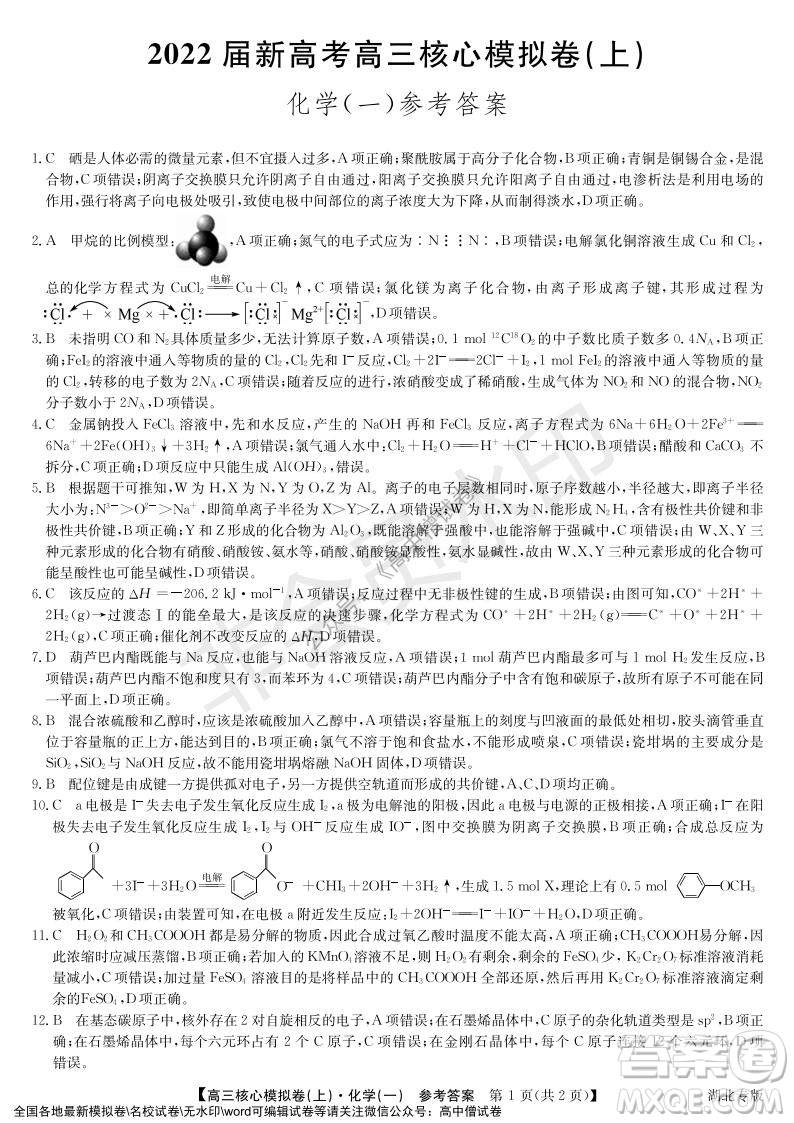 2022 届新高考高三核心模拟卷(上)
化学(一)参考答案
1.C 硒是人体必需的微量元素,但不宜摄入过多,A项正确;聚酰胺属于高分子化合物,B项正确;青铜是铜锡合金,是混
合物,C项错误;阴离子交换膜只允许阴离子自由通过,阳离子交换膜只允许阳离子自由通过,电渗析法是利用电场的
作用,强行将离子向电极处吸引,致使电极中间部位的离子浓度大为下降,从而制得淡水,D项正确。
2.A 甲烷的比例模型: ,A项正确;氮气的电子式应为∶N⋮⋮N∶,B项错误;电解氯化铜溶液生成 Cu 和 Cl₂,
总的化学方程式为 CuCl₂ 电解 Cu+Cl₂↑,C 项错误;氯化镁为离子化合物,由离子形成离子键,其形成过程为
·Cl + × Mg × + Cl → [Cl]⁻ Mg²⁺ [Cl]⁻,D项错误。
3.B 未指明 CO 和 N₂具体质量多少,无法计算原子数,A项错误;0.1 mol ¹²C¹⁸O₂的中子数比质子数多 0.4Nᴀ,B项正
确;FeI₂的溶液中通入等物质的量的 Cl₂,Cl₂先和 I⁻反应,Cl₂+2I⁻══2Cl⁻+I₂,1 mol FeI₂的溶液中通入等物质的量
的 Cl₂,转移的电子数为 2Nᴀ,C项错误;随着反应的进行,浓硝酸变成了稀硝酸,生成气体为 NO₂和 NO 的混合物,NO₂
分子数小于 2Nᴀ,D项错误。
4.C 金属钠投入 FeCl₃ 溶液中,先和水反应,产生的 NaOH 再和 FeCl₃ 反应,离子方程式为 6Na+6H₂O+2Fe³⁺══
6Na⁺+2Fe(OH)₃↓+3H₂↑,A项错误;氯气通入水中:Cl₂+H₂O══H⁺+Cl⁻+HClO,B项错误;醋酸和 CaCO₃ 不
拆分,C项正确;D项反应中只能生成 Al(OH)₃,错误。
5.B 根据题干可推知,W 为 H,X 为 N,Y 为 O,Z 为 Al。离子的电子层数相同时,原子序数越小,半径越大,即离子半径
大小为:N³⁻>O²⁻>Na⁺,即简单离子半径为 X>Y>Z,A项错误;W 为 H,X 为 N,能形成 N₂H₄,含有极性共价键和非
极性共价键,B项正确;Y 和 Z 形成的化合物为 Al₂O₃,既能溶解于强酸中,也能溶解于强碱中,C项错误;由 W、X、Y 三
种元素形成的化合物有硝酸、硝酸铵、氨水等,硝酸、硝酸铵显酸性,氨水显碱性,故由 W、X、Y 三种元素形成的化合物可
能呈酸性也可能呈碱性,D项错误。
6.C 该反应的 ΔH=−206.2 kJ·mol⁻¹,A项错误;反应过程中无非极性键的生成,B项错误;由图可知,CO*+2H*+
2H₂(g)→过渡态Ⅰ的能垒最大,是该反应的决速步骤,化学方程式为 CO*+2H*+2H₂(g)══C*+O*+2H*+
2H₂(g),C项正确;催化剂不改变反应的 ΔH,D项错误。
7.D 葫芦巴内酯既能与 Na 反应,也能与 NaOH 溶液反应,A项错误;1 mol 葫芦巴内酯最多可与 1 mol H₂发生反应,B
项错误;葫芦巴内酯不饱和度只有 3,而苯环为 4,C项错误;葫芦巴内酯分子中含有饱和碳原子,故所有原子不可能在同
一平面上,D项正确。
8.B 混合浓硫酸和乙醇时,应该是浓硫酸加入乙醇中,A项错误;容量瓶上的刻度与凹液面的最低处相切,胶头滴管垂直
位于容量瓶的正上方,能达到目的,B项正确;氯气不溶于饱和食盐水,不能形成喷泉,C项错误;瓷坩埚的主要成分是
SiO₂,SiO₂与 NaOH 反应,故不能用瓷坩埚熔融 NaOH 固体,D项错误。
9.B 配位键是由成键一方提供孤对电子,另一方提供空轨道而形成的共价键,A、C、D项均正确。
10.C a电极是 I⁻失去电子发生氧化反应生成 I₂,a极为电解池的阳极,因此 a 电极与电源的正极相接,A项正确;I⁻在阳
极失去电子发生氧化反应生成 I₂,I₂与 OH⁻反应生成 IO⁻,图中交换膜为阴离子交换膜,B项正确;合成总反应为
O O
+3I⁻+3H₂O 电解 O⁻ +CHI₃+2OH⁻+3H₂↑,生成 1.5 mol X,理论上有 0.5 mol OCH₃
被氧化,C项错误;由装置可知,在电极 a 附近发生反应:I₂+2OH⁻══I⁻+IO⁻+H₂O,D项正确。
11.C H₂O₂和 CH₃COOOH 都是易分解的物质,因此合成过氧乙酸时温度不能太高,A项正确;CH₃COOOH易分解,因
此浓缩时应减压蒸馏,B项正确;若加入的 KMnO₄溶液不足,则 H₂O₂有剩余,剩余的 FeSO₄少,K₂Cr₂O₇标准溶液消耗
量减小,C项错误;加过量 FeSO₄ 溶液目的是将样品中的 CH₃COOOH 全部还原,然后再用 K₂Cr₂O₇标准溶液滴定剩
余的FeSO₄,D项正确。
12.B 在基态碳原子中,核外存在 2 对自旋相反的电子,A项错误;在石墨烯晶体中,C 原子的杂化轨道类型是 sp²,B项正
确;在石墨烯晶体中,每个六元环占有 2 个 C 原子,C项错误;在金刚石晶体中,每个 C 原子连接 12 个六元环,D项
错误。
【高三核心模拟卷(上)·化学(一) 参考答案 第 1 页(共 2 页)】 湖北专版
全国各地最新模拟卷\名校试卷\无水印\word可编辑试卷等请关注微信公众号:高中僧试卷
非会员水印
公众号:《高中僧试卷》